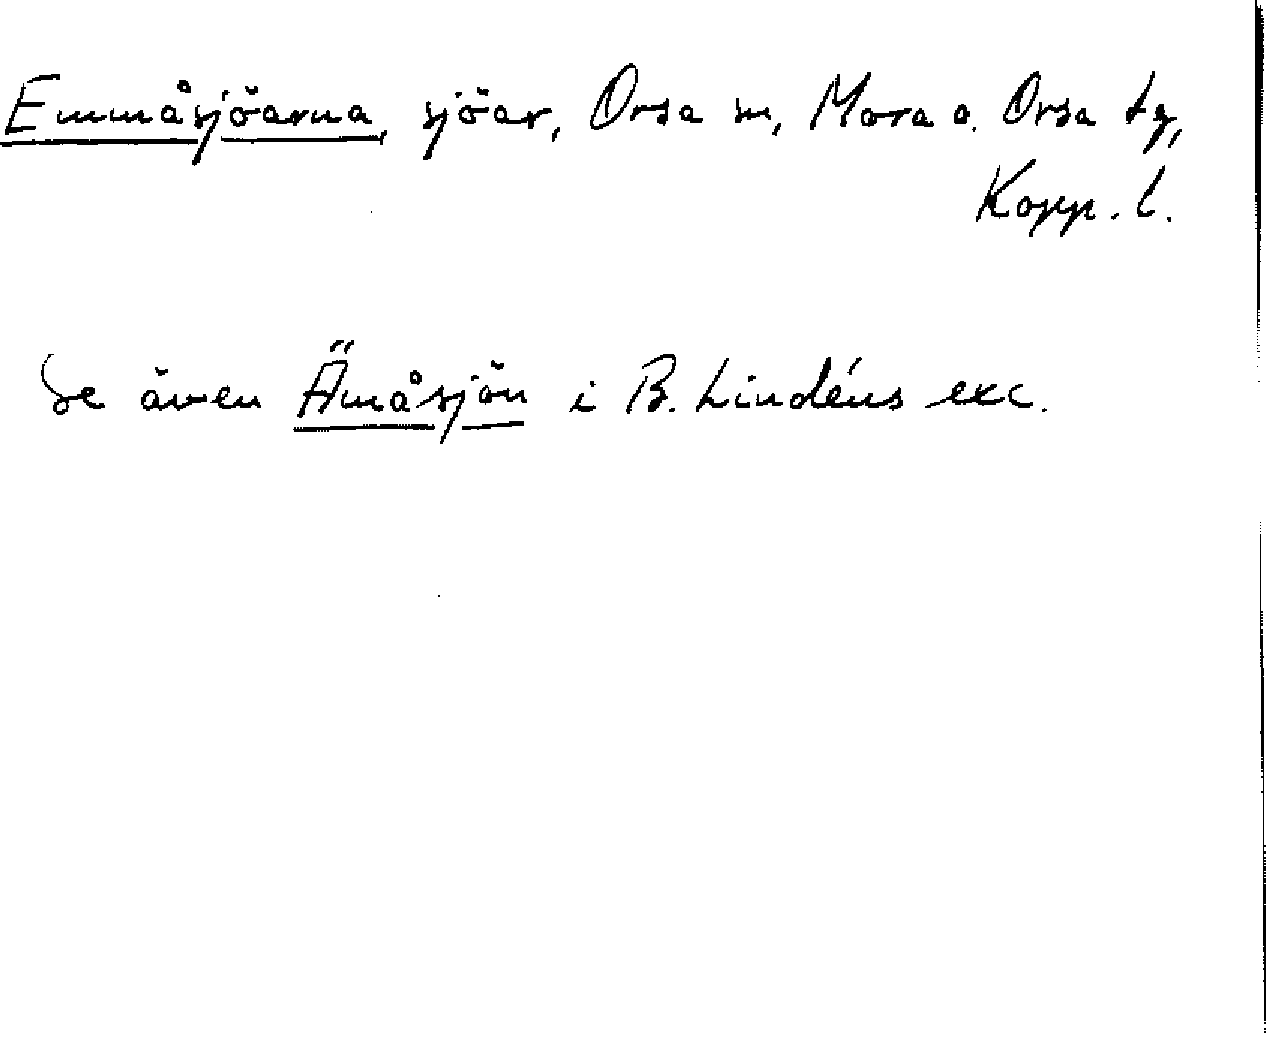 Emmåsjöarna, sjöar, Orsa sn, Mora o. Orsa tg,
Kopp. l.
Se även Ämåsjön i B. Lindéns exc.